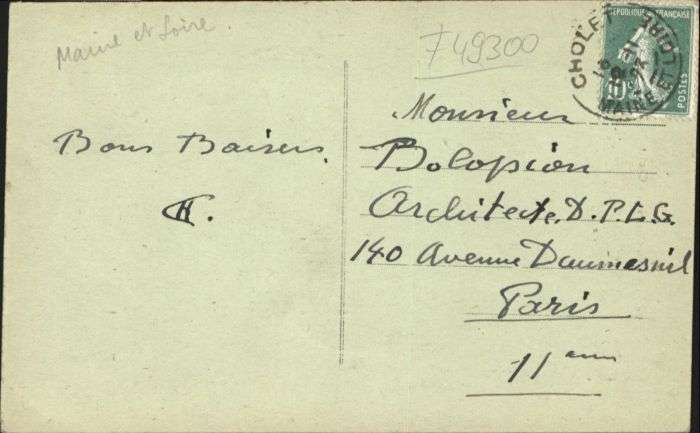 Maine et Loire
F 49300
RÉPUBLIQUE FRANÇAISE
POSTES
CHOLET
MAINE ET LOIRE
Bons Baisers.
Monsieur
Bolopion
Architecte. D.P.L.G.
140 Avenue Daumesnil
Paris
11eme